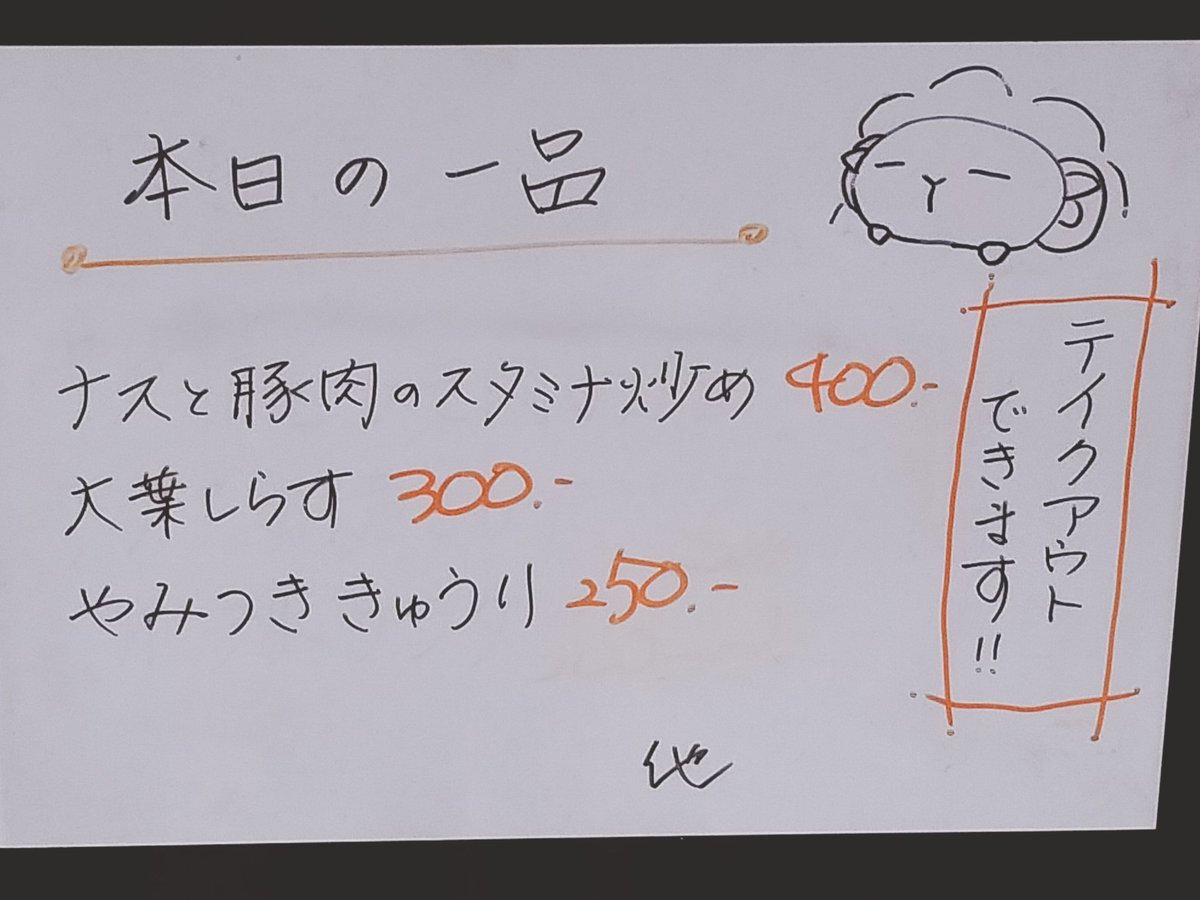 本日の一品
ナスと豚肉のスタミナ炒め 400.-
大葉しらす 300.-
やみつききゅうり 250.-
他
テイクアウト
できます!!